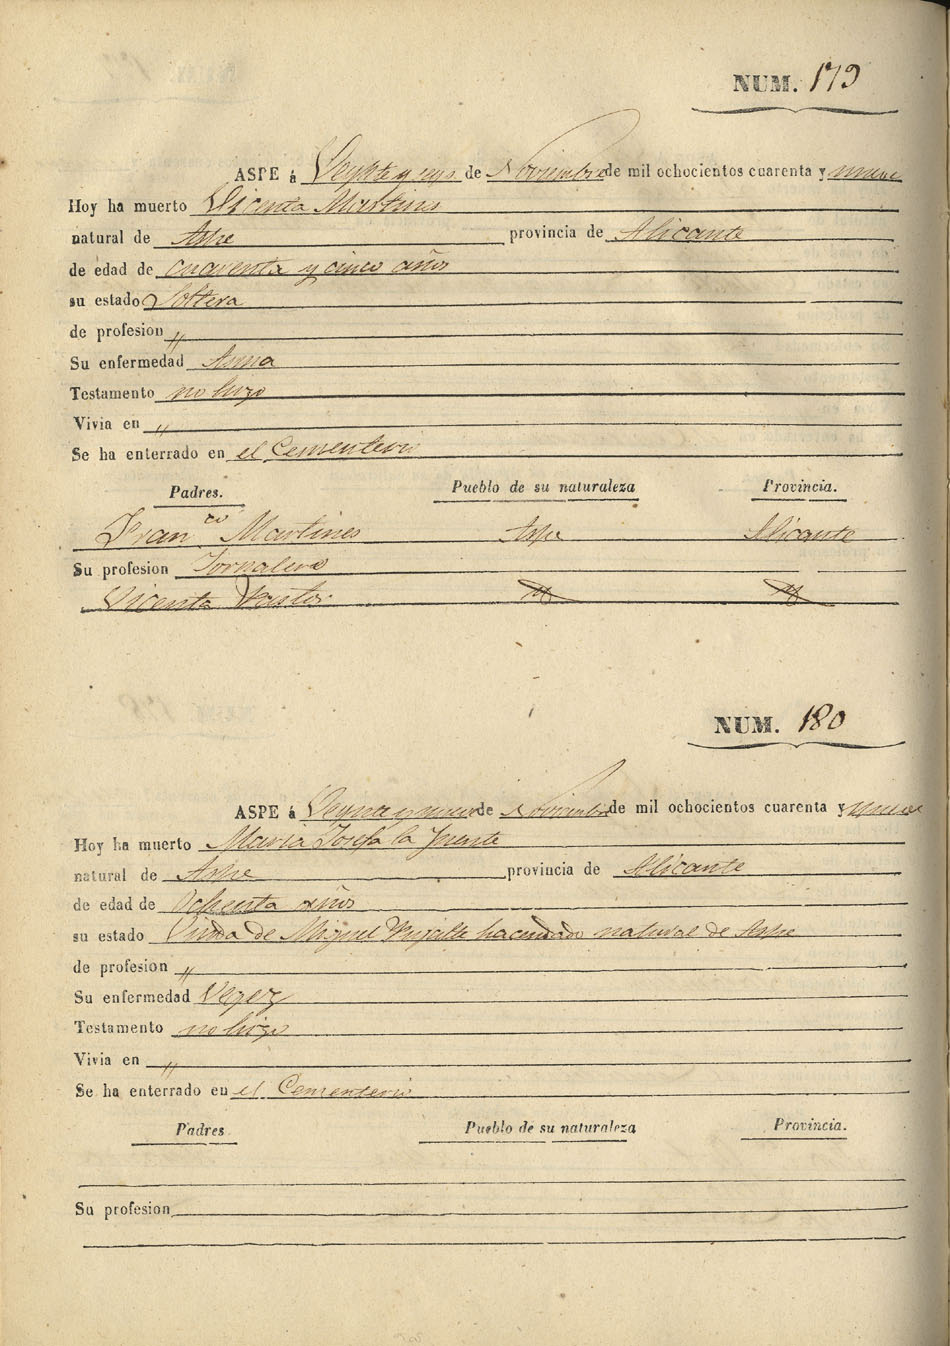 NUM. 179
ASPE á Veynta y seys de Noviembre de mil ochocientos cuarenta y nueve
Hoy ha muerto Vicenta Martines
natural de Aspe provincia de Alicante
de edad de cuarenta y cinco años
su estado Soltera
de profesion "
Su enfermedad Asma
Testamento no hizo
Vivia en "
Se ha enterrado en el Cementerio
Padres. Pueblo de su naturaleza Provincia.
Franco Martines Aspe Alicante
Su profesion Jornalero
Vicenta Pastor
NUM. 180
ASPE á de Noviembre de mil ochocientos cuarenta y nueve
Hoy ha muerto Maria Josefa la Fuente
natural de Aspe provincia de Alicante
de edad de Ochenta años
su estado Viuda de Miguel hacendado natural de Aspe
de profesion "
Su enfermedad Vegez
Testamento no hizo
Vivia en "
Se ha enterrado en el Cementerio
Padres Pueblo de su naturaleza Provincia.
Su profesion